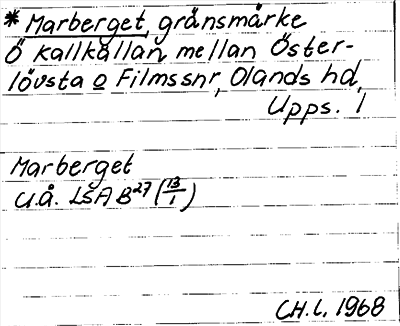 * Marberget, gränsmärke
Ö Kallkällan mellan Öster-
lövsta o Filmssnr, Olands hd,
Upps. l
Marberget
u.å. LSA B27 (13/1)
CH.L. 1968